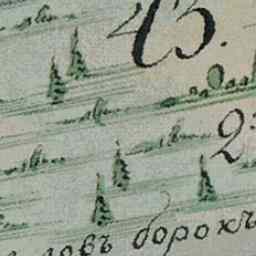 43.
2:
ловъ борокъ